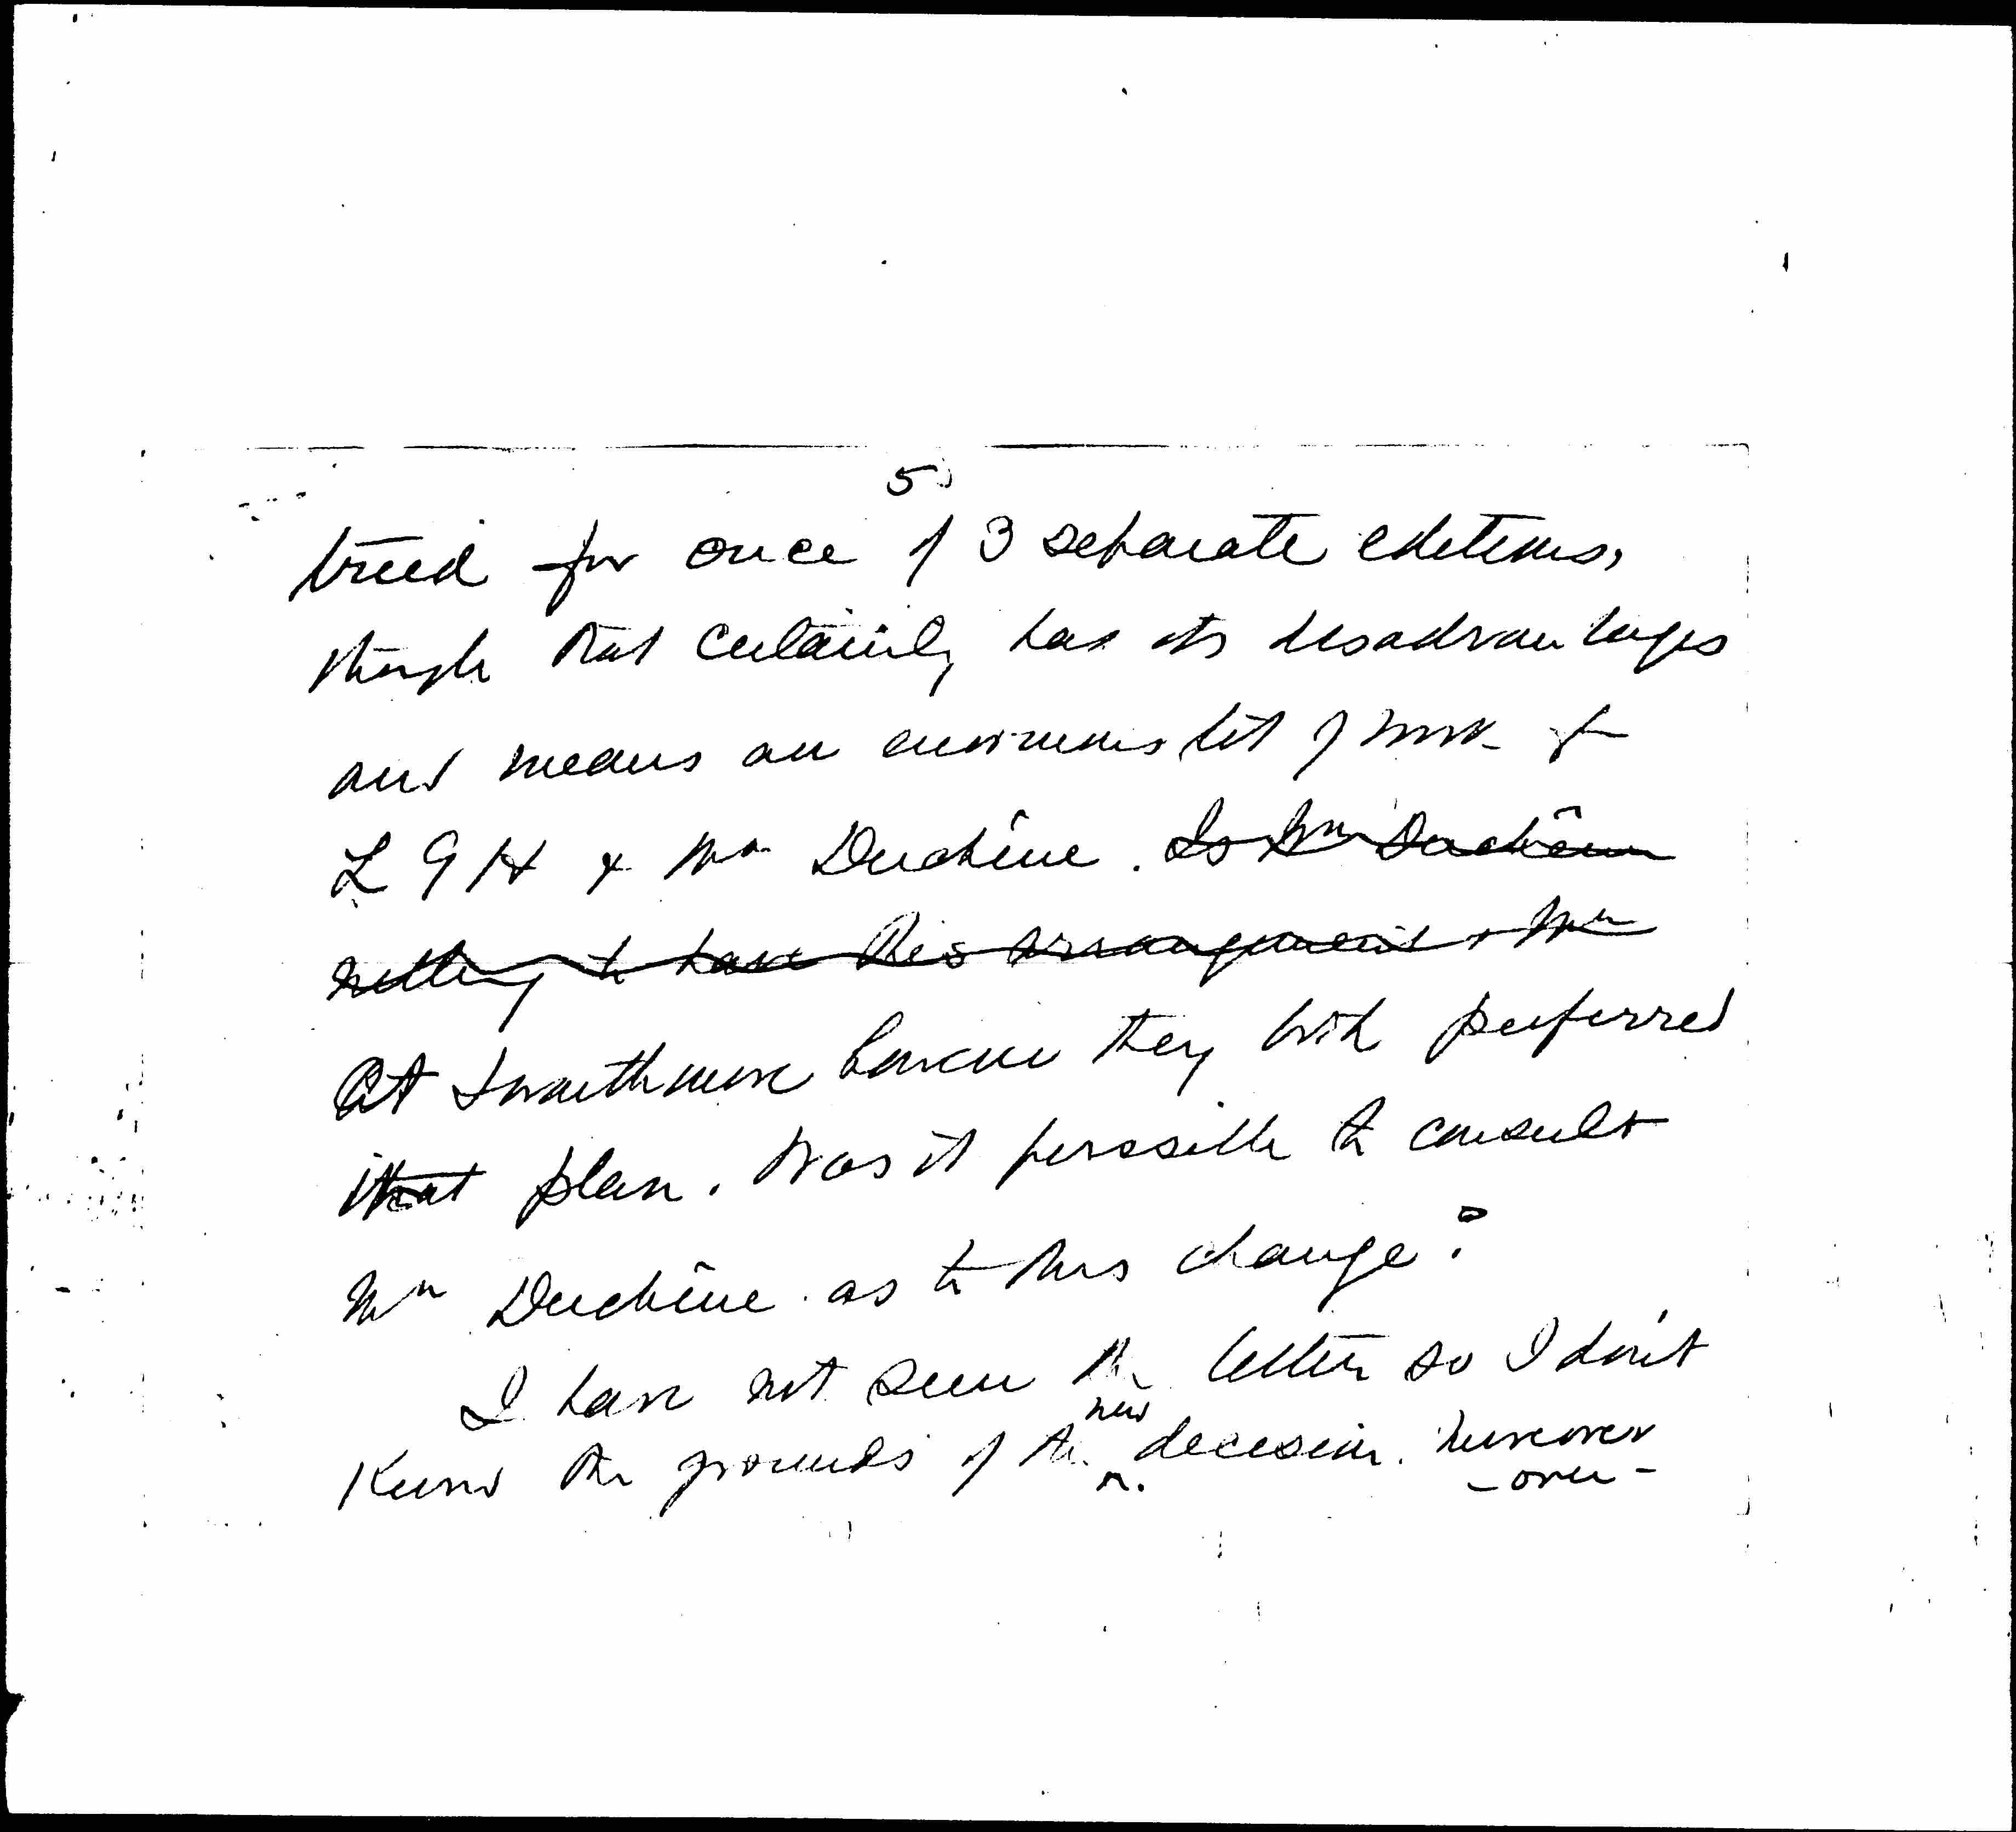 5
tried for once of 3 separate editions,
though that certainly has its disadvantages
and means an enormous lot of work for
L G H & Mme Duchêne. Is Mme Duchêne
willing to have this arrangement & Mme
At Swarthmore however they both perferred
that plan. Was it possible to consult
Mme Duchêne as to this change?
I have not seen the letter so I don't
new
Know the grounds of the decision. however
- over -